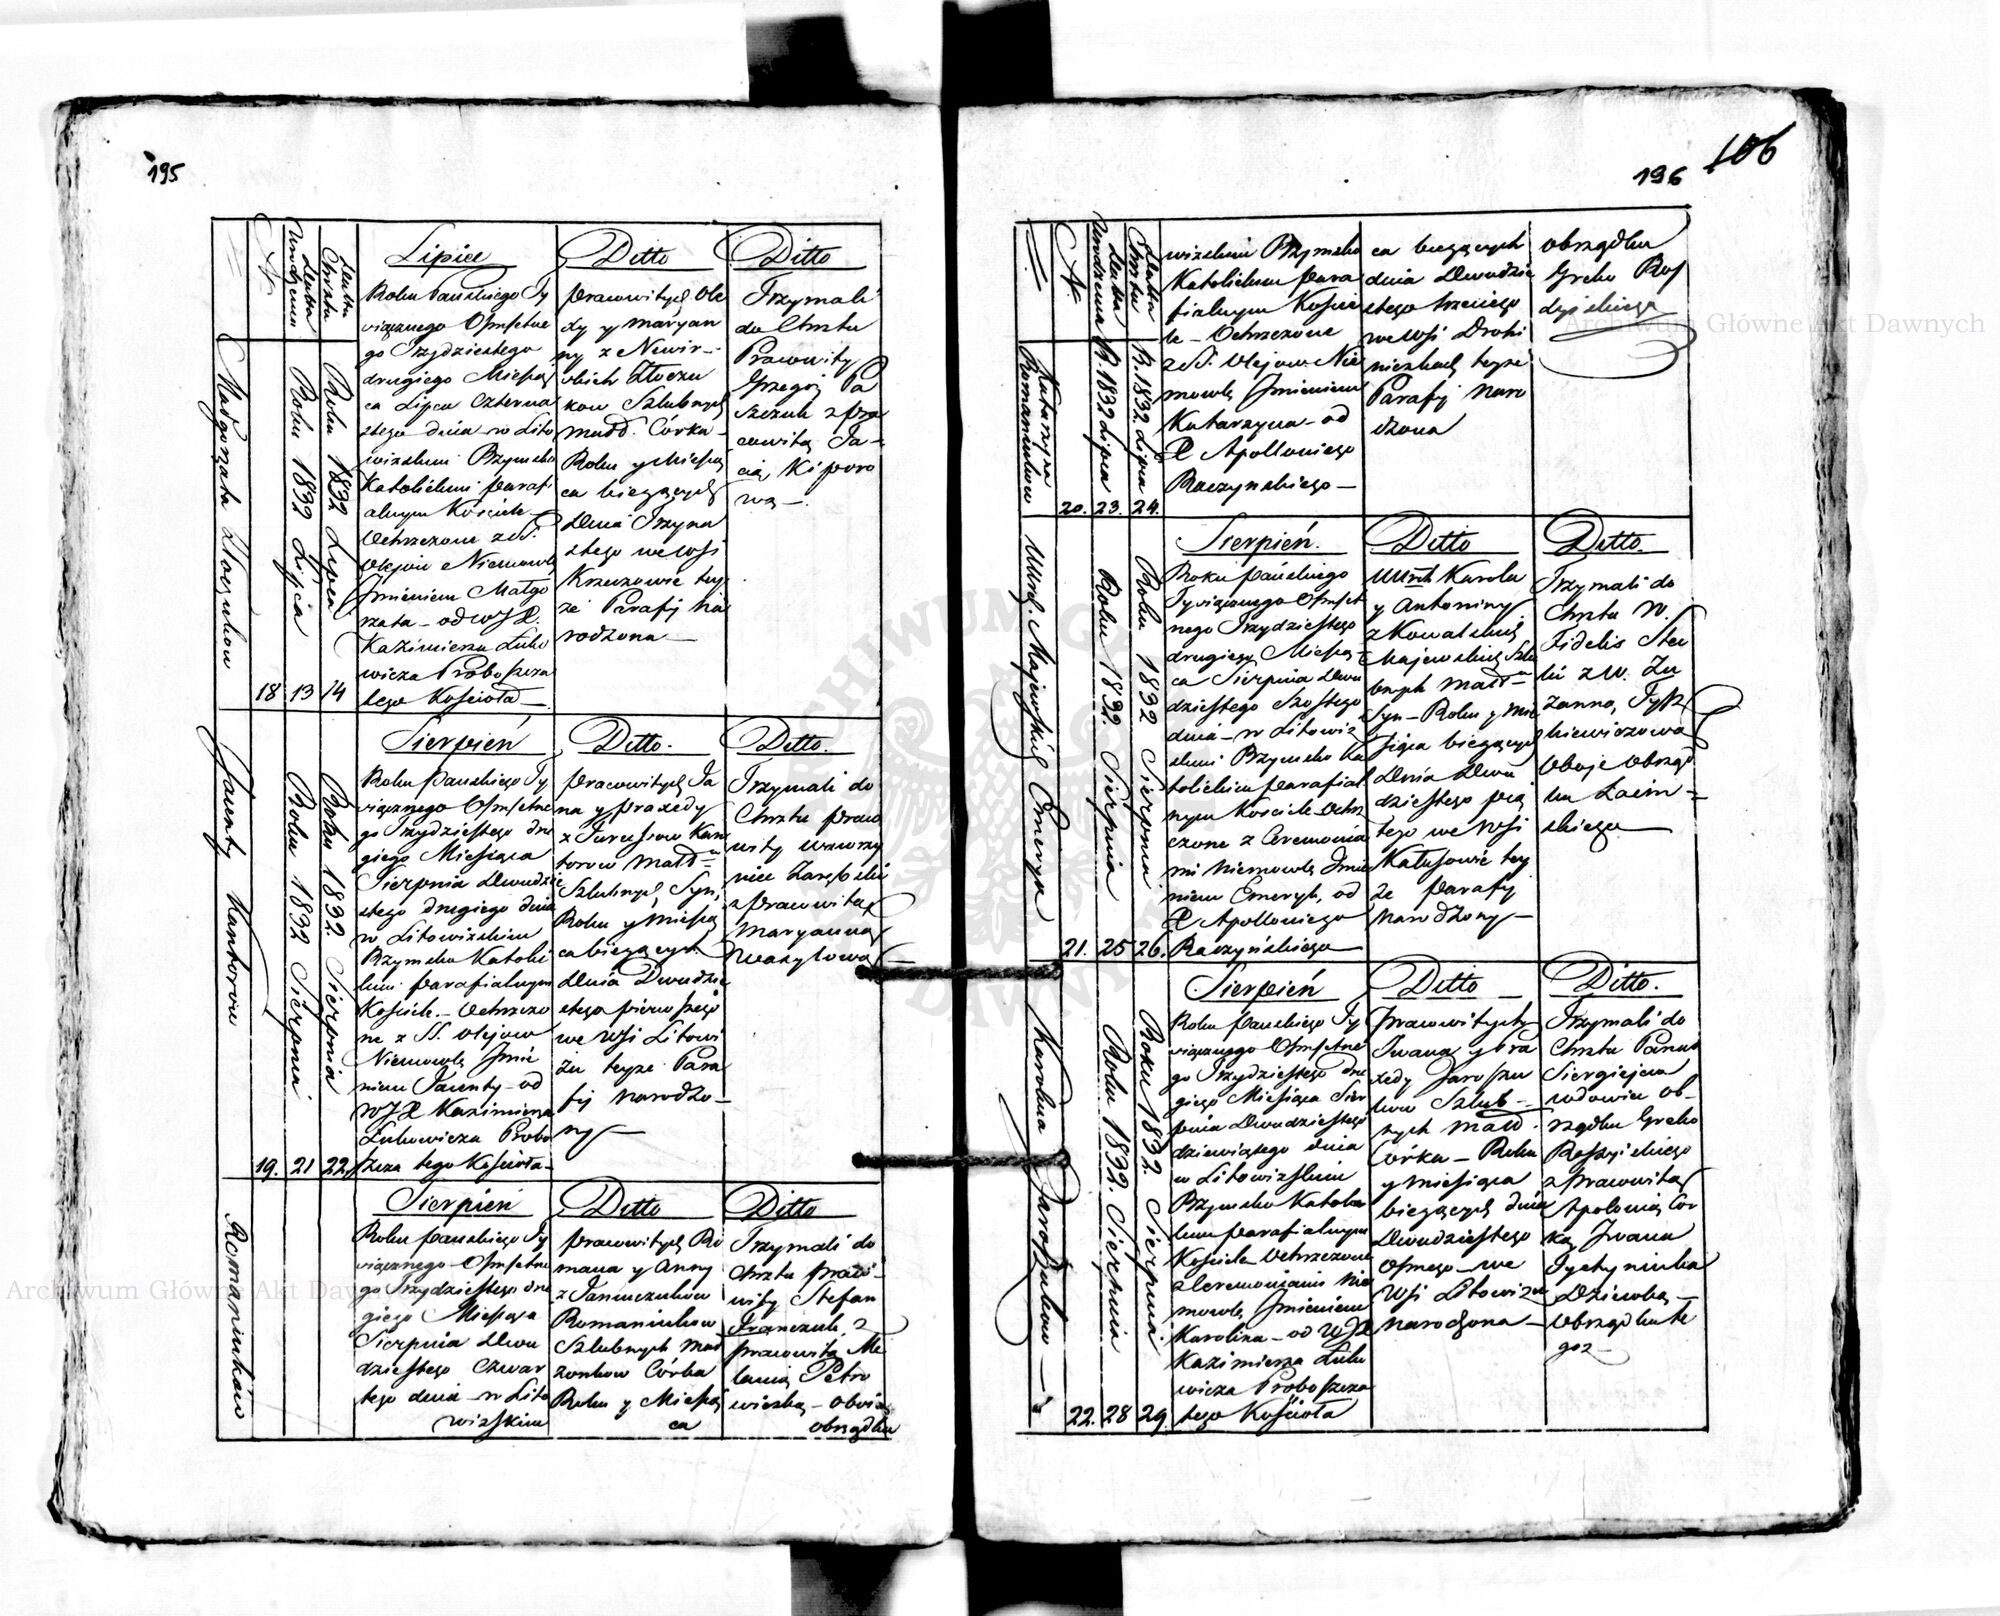 195
N
Data Urodzenia
Data Chrztu
Lipiec
Ditto
Ditto
Małgorzata Złoczukow
18
Roku 1832 Lipca 13
Roku 1832 Lipca 14
Roku Pańskiego Ty
siącznego Osmsetne
go Trzydziestego
drugiego Miesią
ca Lipca Czterna
stego dnia w Lito
wizskim Rzymsko
Katolickim paraf
alnym Kościele
Ochrzczone z SS.
Olejow Niemowle
Jmieniem Małgo
rzata od WJX.
Kazimierza Łuko
wicza Proboszcza
tego Kościoła
pracowitych Ole
xy y Maryan
ny z Newir
skich Złoczu
kow Szlubnych
Małd. Corka
Roku y Miesią
ca bieżących
Dnia Trzyna
stego we Wsi
Krzeczowie tey
że Parafij na
rodzona
Trzymali
do Chrztu
Pracowity
Grzegorz Pa
szczuk z pra
cowitą Ta
cią Kiporo
wą
Sierpień
Ditto.
Ditto.
Jacenty Kantorow
19.
Roku 1832 Sierpnia 21
Roku 1832. Sierpnia 22
Roku pańskiego Ty
siącznego Osmsetne
go Trzydziestego dru
giego Miesiąca
Sierpnia Dwudzie
stego drugiego dnia
w Litowizskim
Rzymsko Katolic
kim parafialnym
Kościele Ochrzczo
ne z SS. Olejow
Niemowle Jmie
niem Jacenty od
WJX Kazimierza
Łukowicza Probo
szcza tego Kościoła
pracowitych Ja
na y Praxedy
z Jaruszow Kan
torow Małd
Szlubnych Syn,
Roku y Miesią
ca bieżących
Dnia Dwudzie
stego pierwszego
we Wsi Litowi
żu teyże Para
fij narodzo
ny
Trzymali do
Chrztu praco
wity Wawrzy
niec Zarębski
z pracowitą
Maryanną
Wasylową
Sierpień
Ditto
Ditto
Romaniukow
Roku pańskiego Ty
siącznego Osmsetne
go Trzydziestego dru
giego Miesiąca
Sierpnia Dwu
dziestego Czwar
tego dnia w Lito
wizskim
pracowitych Ro
mana y Anny
z Janczukow
Romaniukow
Szlubnych Mał
żonkow Córka
Roku y Miesią
ca
Trzymali do
Chrztu praco
wity Stefan
Franczuk z
pracowitą Me
lanią Petro
wiczką oboie
obrządku
196
106
N
Data Urodzenia
Data Chrztu
Katarzyna Romaniukow
20.
R. 1832 Lipca 23.
R. 1832. Lipca 24.
wizskim Rzymsko
Katolickim para
fialnym Koście
le Ochrzczone
z SS. Olejow Nie
mowle Jmieniem
Katarzyna od
X Apolloniego
Raczyńskiego
ca bieżących
dnia Dwudzie
stego trzeciego
we Wsi
teyże
Parafij naro
dzona
obrządku
Greko Ros
syiskiego
Sierpień.
Ditto
Ditto.
Urod. Majewskich Emeryk
21.
Roku 1832. Sierpnia 25
Roku 1832 Sierpnia 26.
Roku pańskiego
Tysiącznego Osmset
nego Trzydziestego
drugiego Miesią
ca Sierpnia Dwu
dziestego Szostego
dnia w Litowiz
skim Rzymsko Ka
tolickim parafial
nym Kościele Ochrz
czone z Ceremonia
mi Niemowle Jmie
niem Emeryk, od
X Apolloniego
Raczyńskiego
Urod. Karola
y Antoniny
z Kowalskich
Majewskich Szlu
bnych Małd
Syn Roku y Mie
siąca bieżących
Dnia Dwu
dziestego pią
tego we Wsi
Kałusowie tey
że parafij
narodzony
Trzymali do
Chrztu W.
Fidelis Stec
ki z W. Zu
zanną Tysz
kiewiczową
Oboje obrząd
ku Łaciń
skiego
Sierpień
Ditto
Ditto.
Karolina Jaroszukow
22.
Roku 1832. Sierpnia 28
Roku 1832 Sierpnia 29.
Roku pańskiego Ty
siącznego Osmsetne
go Trzydziestego dru
giego Miesiąca Sier
pnia Dwudziestego
dziewiątego dnia
w Litowizskim
Rzymsko Katolic
kim parafialnym
Kościele Ochrzczone
z Ceremoniami Nie
mowle Jmieniem
Karolina od WJX
Kazimierza Łuko
wicza Proboszcza
tego Kościoła
pracowitych
Iwana y Pra
xedy Jaroszu
kow Szlub
nych Małd.
Córka Roku
y Miesiąca
bieżących dnia
Dwudziestego
osmego we
Wsi Litowizu
narodzona
Trzymali do
Chrztu Panas
Siergiejew
wdowiec ob
rządku Greko
Rossyiskiego
z pracowitą
Apolonią Cor
ką Iwana
Dziewką
obrządku te
goz
Archiwum Główne Akt Dawnych
Archiwum Główne Akt Dawnych